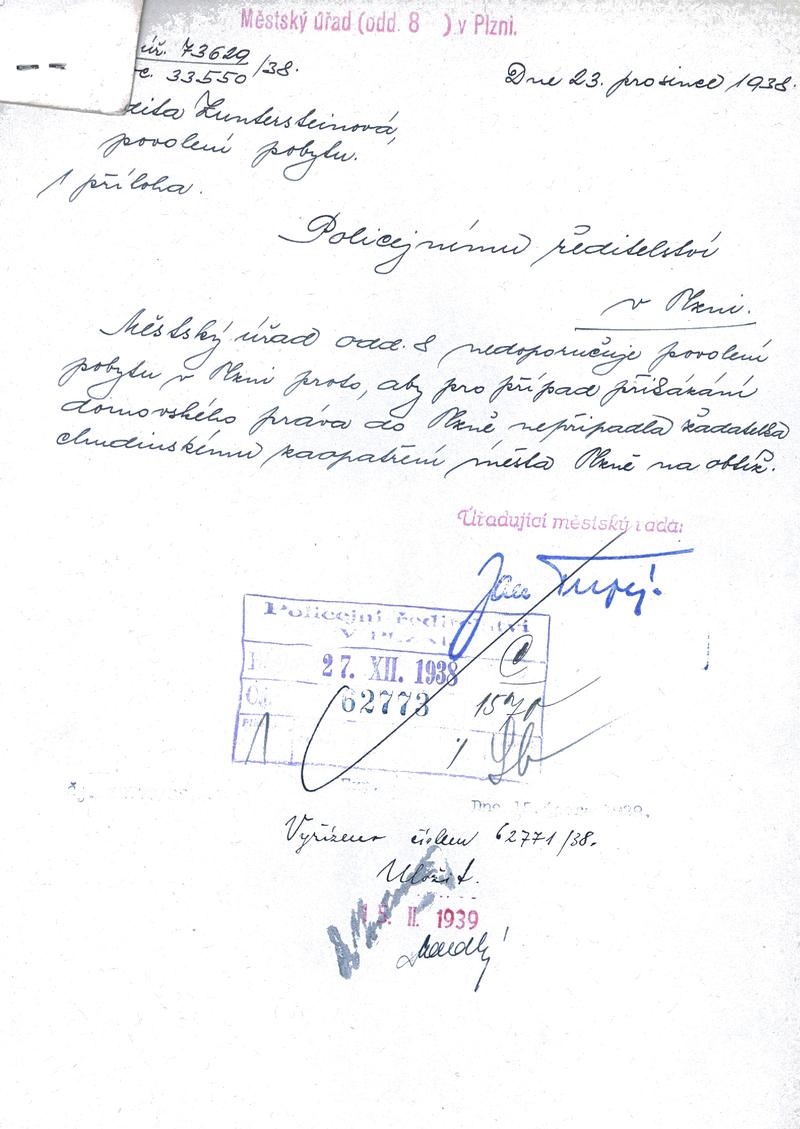 Městský úřad (odd. 8 ) v Plzni.
úř. 73629
č. 33550 /38.
Dne 23. prosince 1938.
dita Zuntersteinová,
povolení pobytu.
1 příloha.
Policejnímu ředitelství
v Plzni.
Městský úřad odd. 8 nedoporučuje povolení
pobytu v Plzni proto, aby pro případ přiřákání
domovského práva do Plzně nepřipadla žadatelka
chudinskému zaopatření města Plzně na obtíž.
Úřadující městský rada:
Jan
Policejní ředitelství
V PLZNI
27. XII. 1938
62773
1
Dne 15. února 1939.
Vyřízeno číslem 62771/38.
Uložit.
15. II. 1939